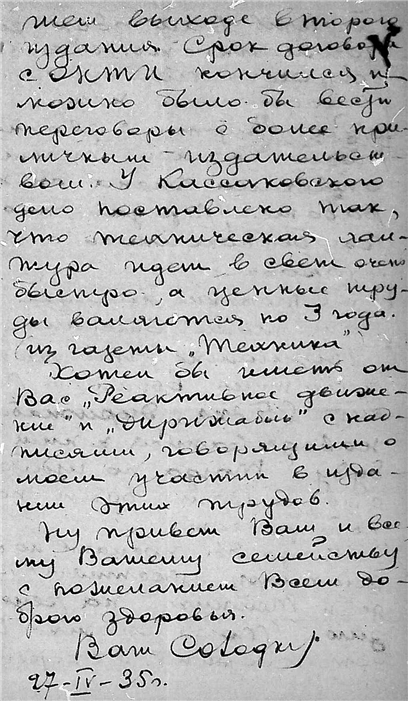 шем выходе второго
издания. Срок договора
с ОНТИ кончился и
можно было бы вести
переговоры с более при-
личным издательст-
вом. У Кассаковского
дело поставлено так,
что техническая
идет в свет очень
быстро, а ценные тру-
ды валяются по 3 года.
(из газеты „Техника")
Хотел бы иметь от
Вас „Реактивное движе-
ние" и „Дирижабль" с над-
писями, говорящими о
моем участии в изда-
нии этих трудов.
Ну привет Вам и все-
му Вашему семейству
с пожеланием Всем до-
брого здоровья.
Ваш
27-IV-35г.